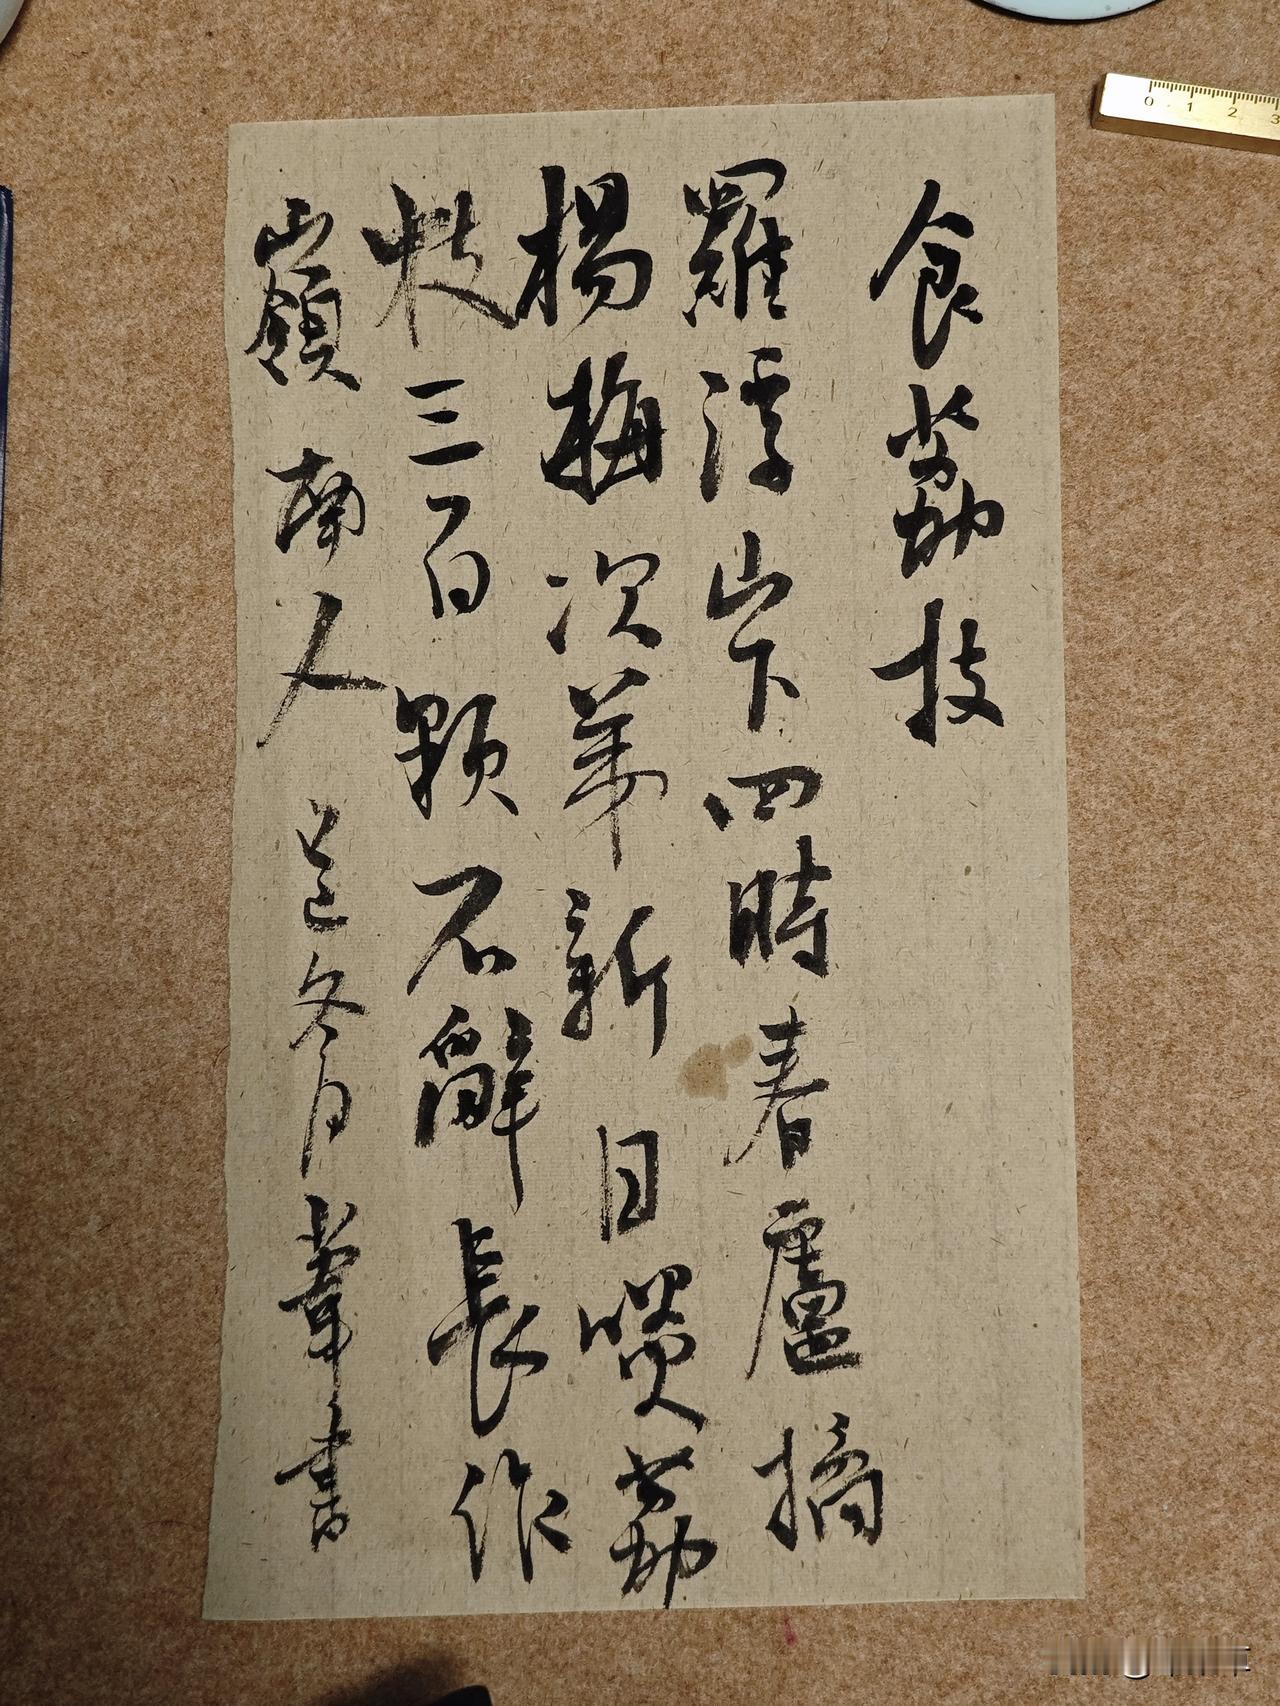 食荔枝
羅浮山下四時春盧橘
楊梅次第新日啖荔
枝三百顆不辭長作
嶺南人 乙巳冬月 書
0 1 2 3